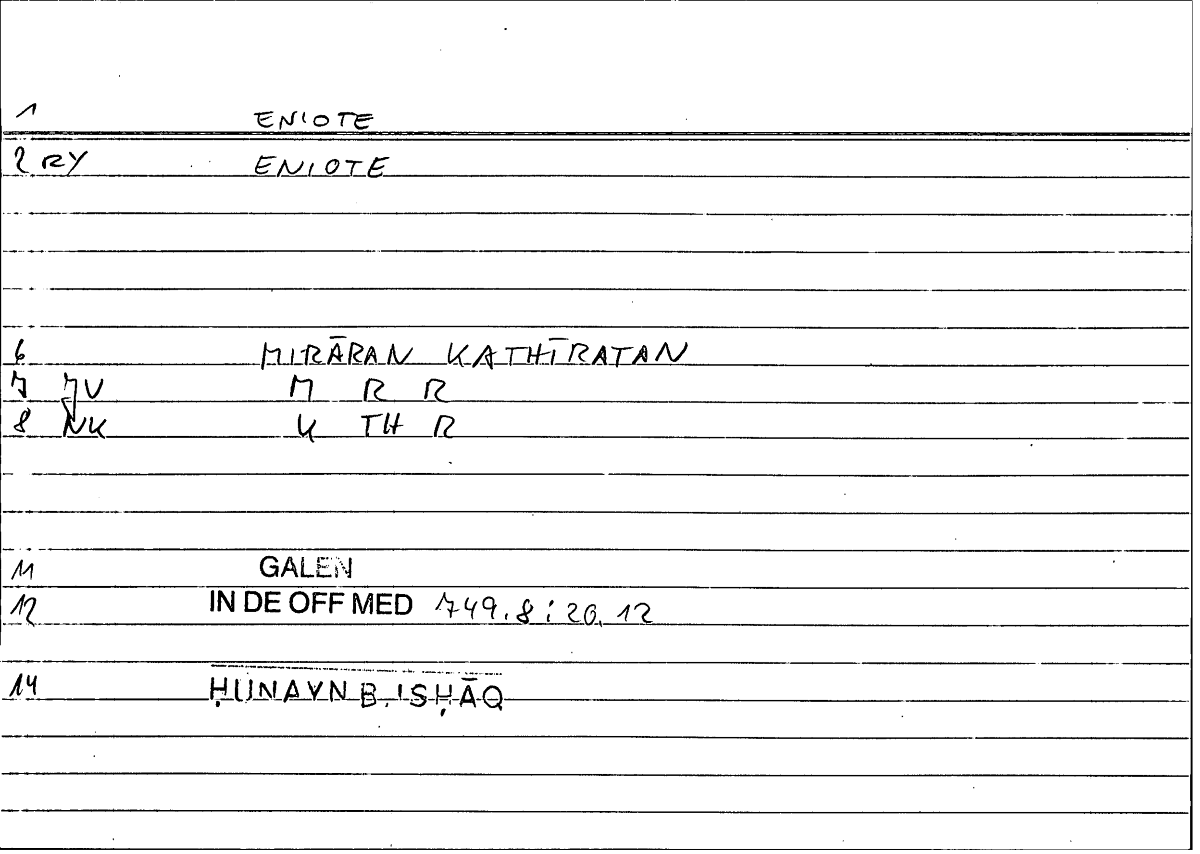 1 ENIOTE
2 RY ENIOTE
6 MIRĀRAN KATHĪRATAN
7 JV M R R
8 NK K TH R
11 GALEN
12 IN DE OFF MED 749.8; 20.12
14 ḤUNAYN B. ISḤĀQ